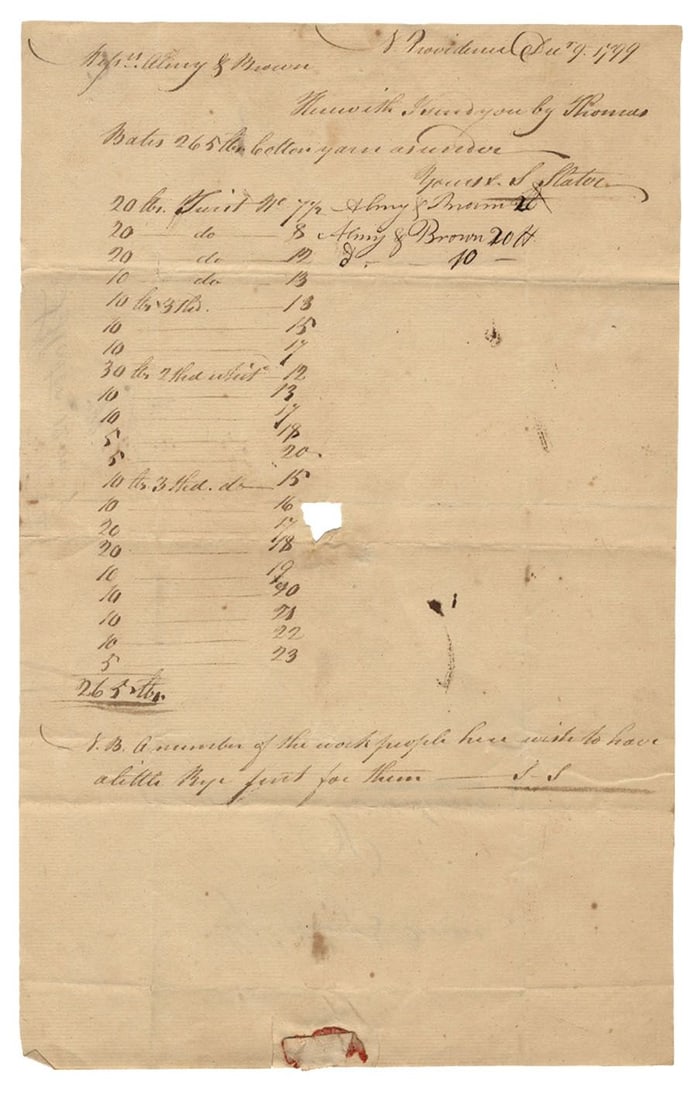 N. Providence Decr 9. 1799
Messrs Almy & Brown
Herewith I send you by Thomas
Bates 265 lbs. Cotton yarn as under
Yours &. S. Slater
20 lbs. Twist No. 7½ Almy & Brown 20
20 do 8 Almy & Brown 20 H
20 do 12 Do. 10 —
10 do 13
10 lbs 3 thd. 13
10 15
10 17
30 lbs 2 thd whits 12
10 13
10 17
5 18
5 20.
10 lbs 3 thd. do 15
10 16
20 17
20 18
10 19
10 20
10 21
10 22
5 23
265 lbs.
N. B. A number of the work people here wish to have
a little Rye sent for them — S. S